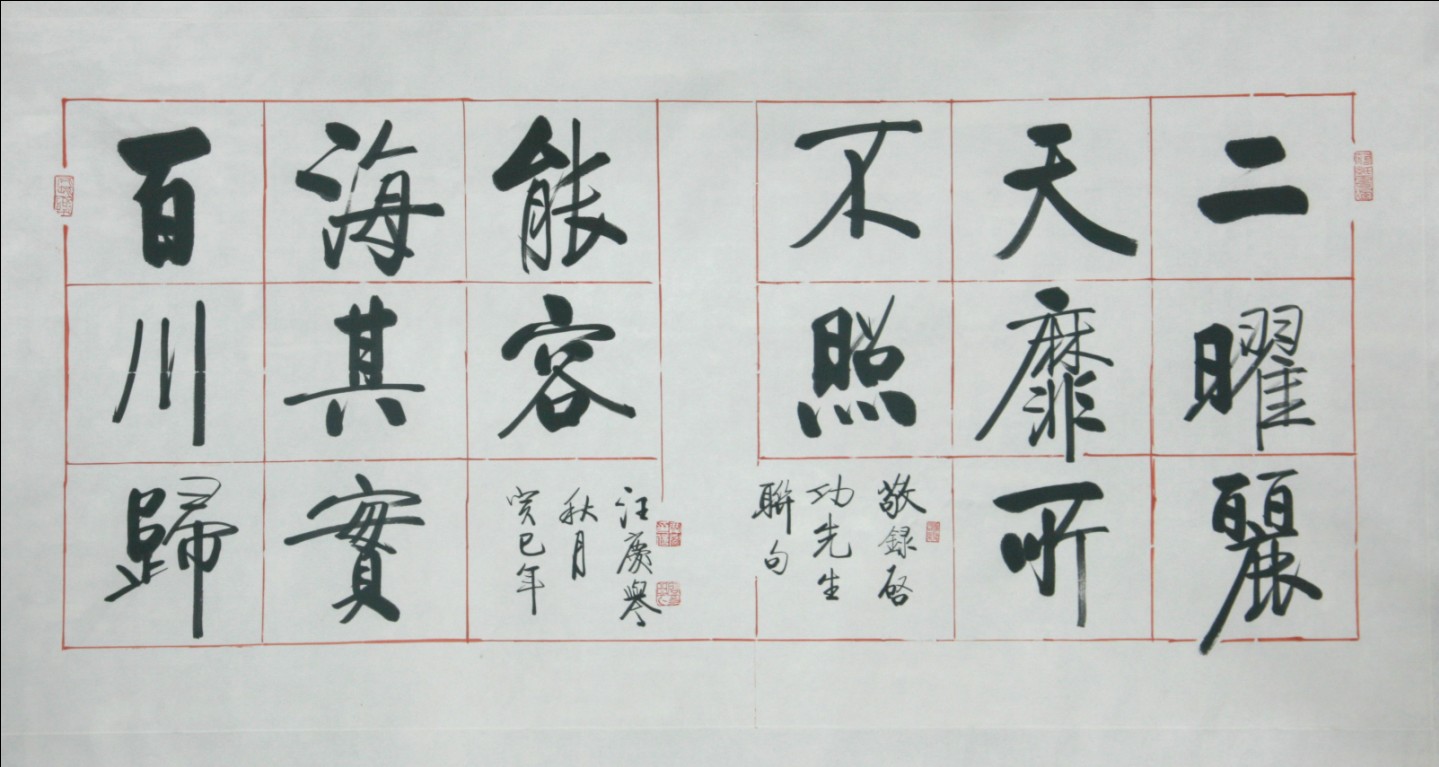 二曜麗
天靡所
不照
敬録启
功先生
聯句
百川歸
海其實
能容
癸巳年
秋月
汪慶舉